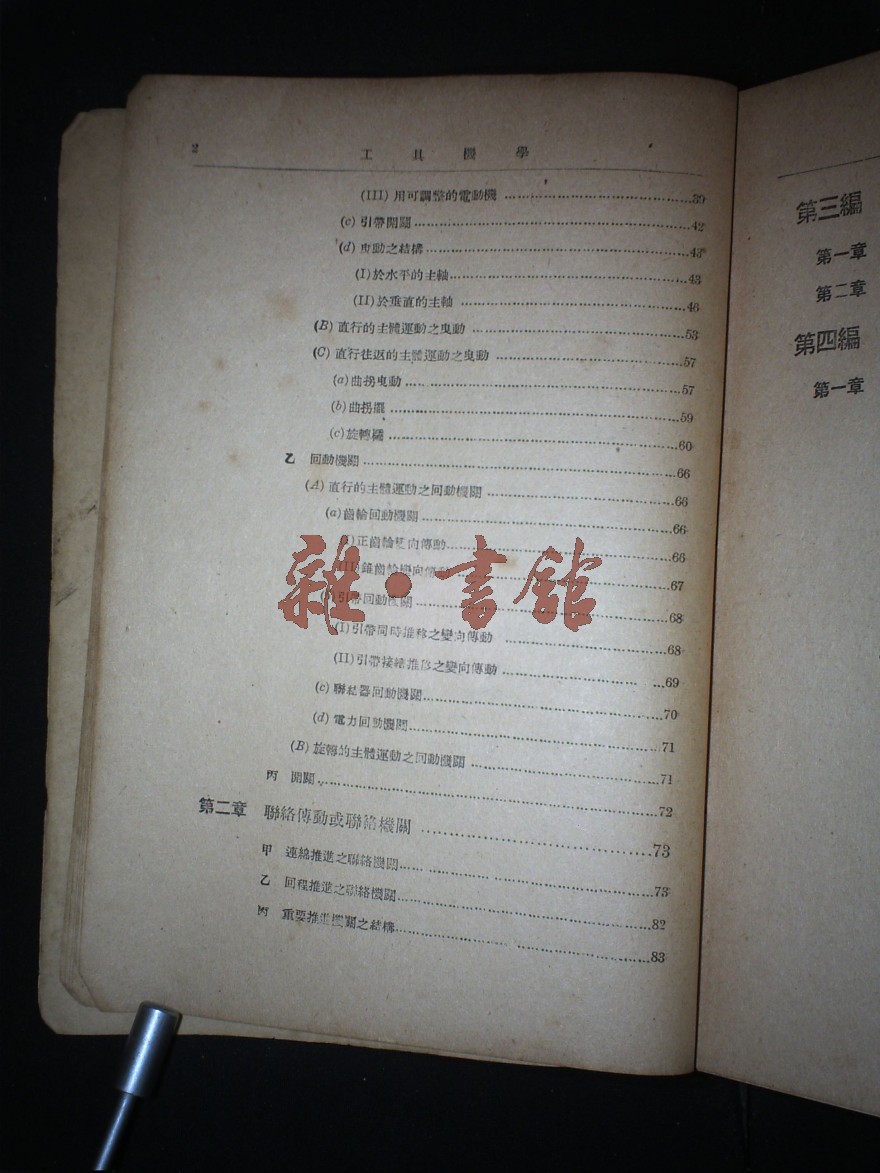 2 工具機學
(III) 用可調整的電動機 39
(c) 引帶開關 42
(d) 曳動之結構 43
(I) 於水平的主軸 43
(II) 於垂直的主軸 46
(B) 直行的主體運動之曳動 53
(C) 直行往返的主體運動之曳動 57
(a) 曲拐曳動 57
(b) 曲拐擺 59
(c) 旋轉 60
乙 回動機關 66
(A) 直行的主體運動之回動機關 66
(a) 齒輪回動機關 66
正齒輪變向傳動 66
(II) 錐齒輪變向傳動 67
引帶回動機關 68
(I) 引帶同時推移之變向傳動 68
(II) 引帶接續推移之變向傳動 69
(c) 聯結器回動機關 70
(d) 電力回動機關 71
(B) 旋轉的主體運動之回動機關 71
丙 開關 72
第二章 聯絡傳動或聯絡機關 73
甲 連續推進之聯絡機關 73
乙 回程推進之聯絡機關 82
丙 重要推進機關之結構 83
雜·書館
第三編
第一章
第二章
第四編
第一章